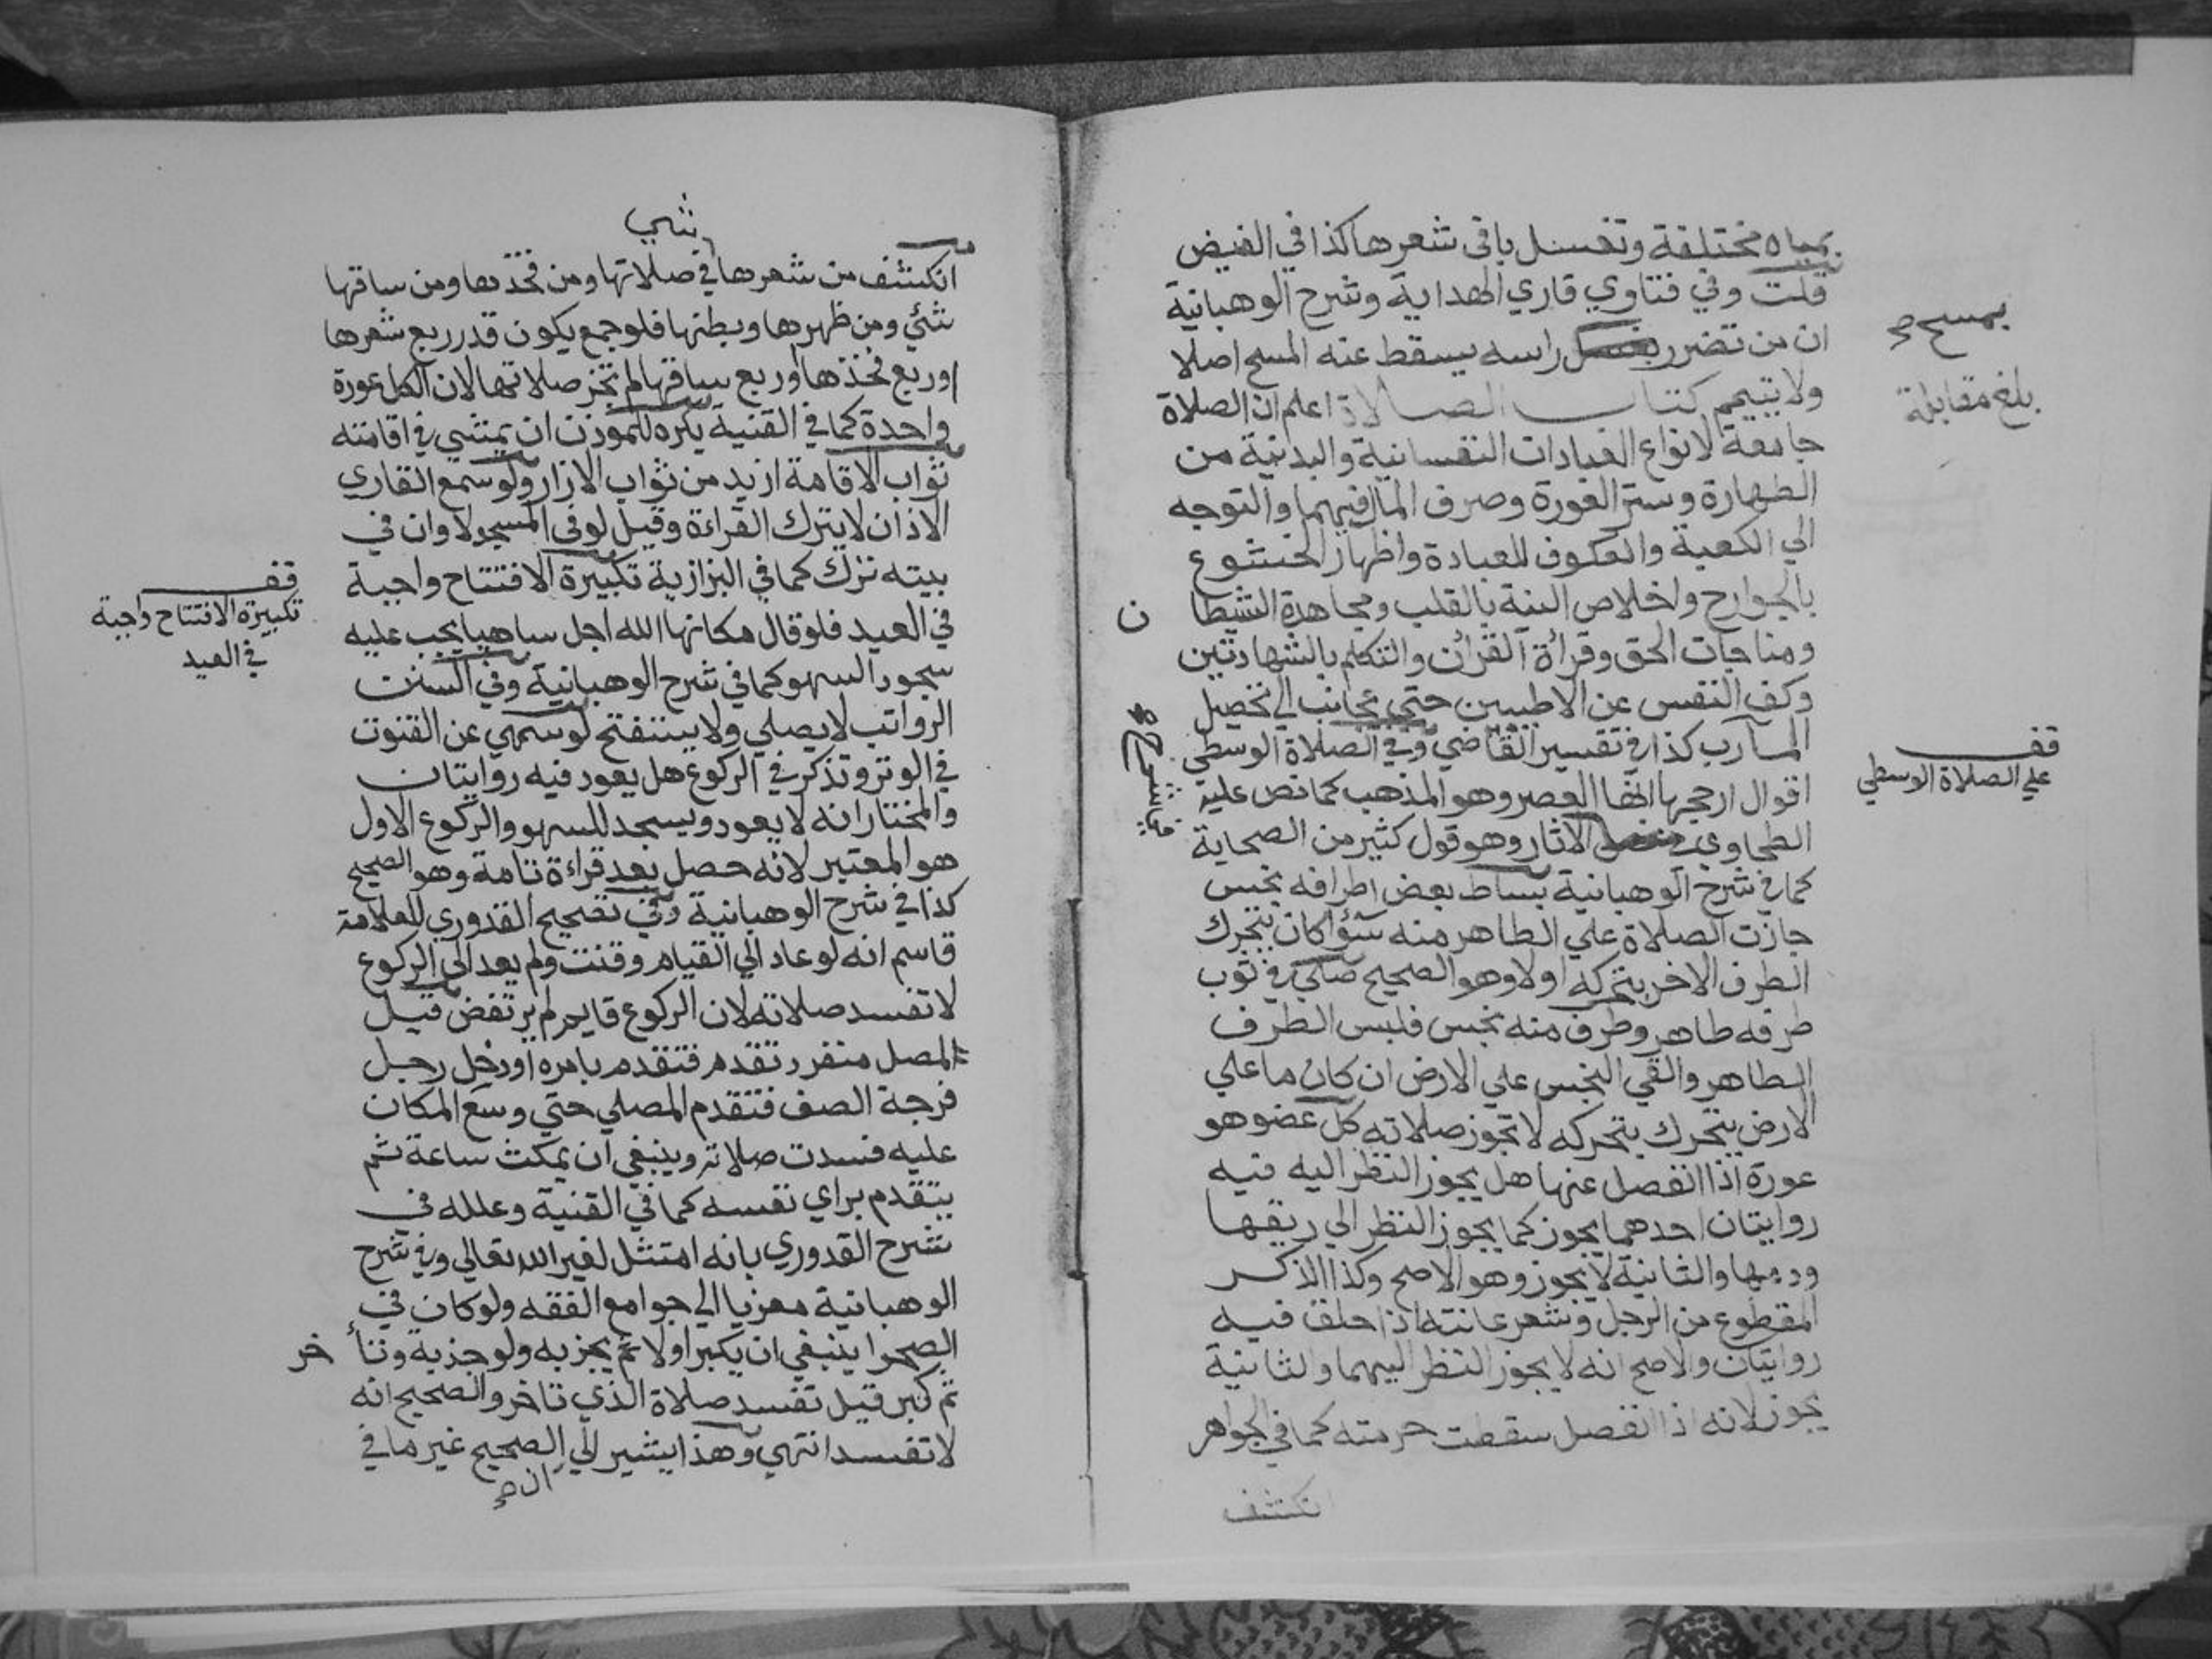 بمياه مختلفة وتغسل باقي شعرها كذا في الفيض
قلت وفي فتاوي قاري الهداية وشرح الوهبانية
ان من تضرر راسه يسقط عنه المسح اصلا
ولا يتيمم كتاب الصلاة اعلم ان الصلاة
جامعة لانواع العبادات النفسانية والبدنية من
الطهارة وستر العورة وصرف المال فيهما والتوجه
الي الكعبة والعكوف للعبادة واظهار الخشوع
بالجوارح واخلاص النية بالقلب ومجاهدة الشيطا ن
ومناجات الحق وقرأة القرأن والتكلم بالشهادتين
وكف النفس عن الاطيبين حتي تجانب الي تحصيل
المآرب كذا في تفسير القاضي وفي الصلاة الوسطي
اقوال ارجحها انها العصر وهو المذهب كما نص عليه
الطحاوي في الاثار وهو قول كثير من الصحابة
كما في شرح الوهبانية بساط بعض اطرافه نجس
جازت الصلاة علي الطاهر منه سوآ كان يتحرك
الطرف الاخر بتحركه اولا وهو الصحيح صلي في ثوب
طرفه طاهر وطرف منه نجس فلبس الطرف
الطاهر والقي النجس علي الارض ان كان ما علي
الارض يتحرك بتحركه لا تجوز صلاته كل عضو هو
عورة اذا انفصل عنها هل يجوز النظر اليه فيه
روايتان احدهما يجوز كما يجوز النظر الي ريقها
ودمها والثانية لا يجوز وهو الاصح وكذا الذكر
المقطوع من الرجل وشعر عانته اذا حلق فيه
روايتان والاصح انه لا يجوز النظر اليهما والثانية
يجوز لانه اذا انفصل سقطت حرمته كما في الجواهر
انكشف
بمسح صح
بلغ مقابلة
قف
علي الصلاة الوسطي
شيي
انكشف من شعرها في صلاتها ومن فخذها ومن ساقها
شئي ومن ظهرها وبطنها فلو جمع يكون قدر ربع شعرها
او ربع فخذها او ربع ساقها لم تجز صلاتها لان الكل عورة
واحدة كما في القنية يكره للمؤذن ان يمشي في اقامته
ثواب الاقامة ازيد من ثواب الاذان ولو سمع القاري
الاذان لا يترك القراءة وقيل لو في المسجد لا وان في
بيته ترك كما في البزازية تكبيرة الافتتاح واجبة
في العيد فلو قال مكانها الله اجل ساهيا يجب عليه
سجود السهو كما في شرح الوهبانية وفي السنن
الرواتب لا يصلي ولا يستفتح لو سهي عن القنوت
في الوتر وتذكر في الركوع هل يعود فيه روايتان
والمختار انه لا يعود ويسجد للسهو والركوع الاول
هو المعتبر لانه حصل بعد قراءة تامة وهو الصحيح
كذا في شرح الوهبانية وفي تصحيح القدوري للعلامة
قاسم انه لو عاد الي القيام وقنت ولم يعد الي الركوع
لا تفسد صلاته لان الركوع قايم لم يرتفض قيل
لمصل منفرد تقدم فتقدم بامره او دخل رجل
فرجة الصف فتقدم المصلي حتي وسع المكان
عليه فسدت صلاته وينبغي ان يمكث ساعة ثم
يتقدم براي نفسه كما في القنية وعلله في
شرح القدوري بانه امتثل لغير الله تعالي وفي شرح
الوهبانية معزيا الي جوامع الفقه ولو كان في
الصحرا ينبغي ان يكبر اولا ثم يجزبه ولو جذبه وتأ خر
ثم كبر قيل تفسد صلاة الذي تاخر والصحيح انه
لا تفسد انتهي وهذا يشير الي الصحيح غير ما في
ان صح
قف
تكبيرة الافتتاح واجبة
في العيد